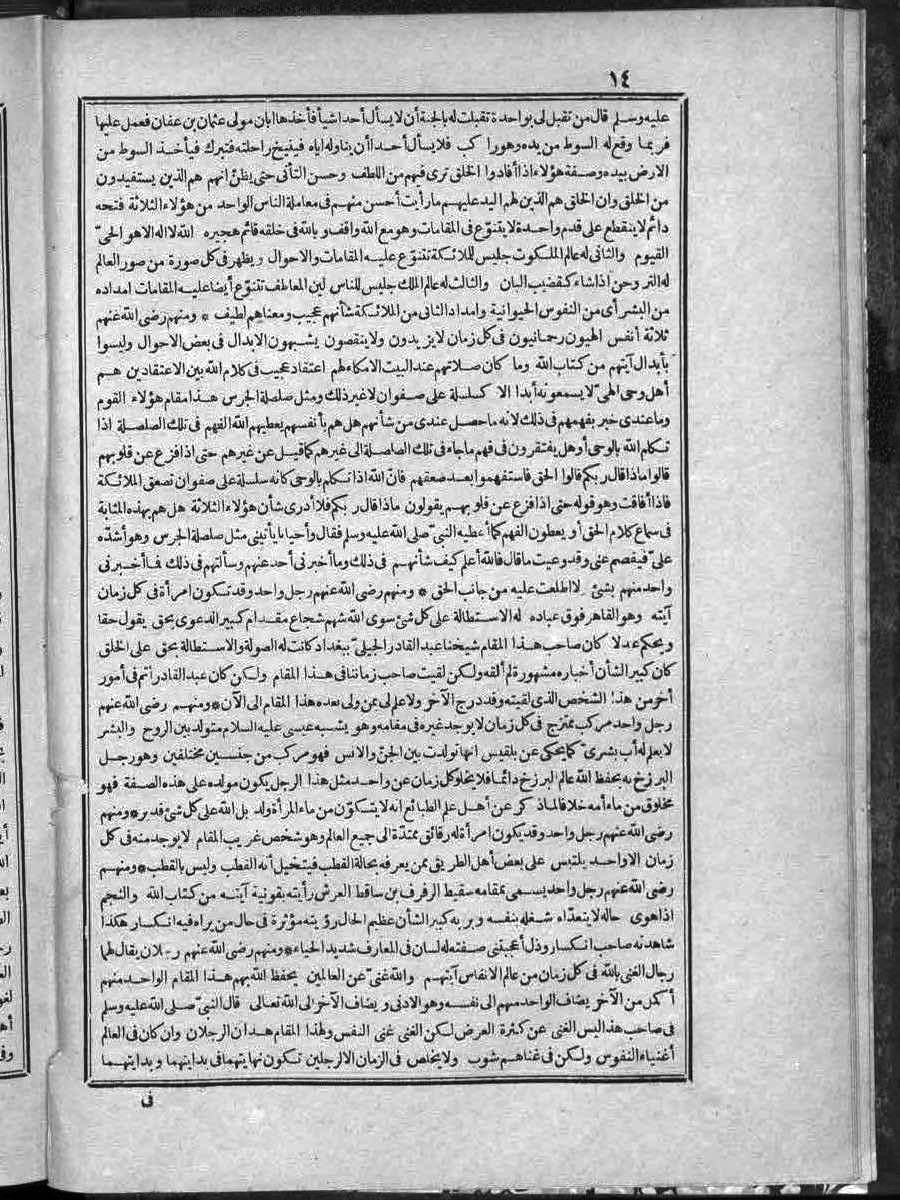 ١٤
عليه وسلم قال من تقبل لى بواحدة تقبلت له بالجنة أن لا يسأل أحدا شيأ فأخذها ابان مولى عثمان بن عفان فعمل عليها
فربما وقع له السوط من يده وهو راكب فلا يسأل أحدا أن يناوله اياه فينيخ راحلته فتبرك فيأخذ السوط من
الارض بيده وصفة هؤلاء اذا أفادوا الخلق ترى فيهم من اللطف وحسن التأنى حتى يظن انهم هم الذين يستفيدون
من الخلق وان الخلق هم الذين لهم اليد عليهم ما رأيت أحسن منهم فى معاملة الناس الواحد من هؤلاء الثلاثة فتحه
دائم لا ينقطع على قدم واحدة لا يتنوّع فى المقامات وهو مع الله واقف وبالله فى خلقه قائم هجيره الله لا اله الا هو الحىّ
القيوم والثانى له عالم الملكوت جليس للملائكة تتنوّع عليه المقامات والاحوال ويظهر فى كل صورة من صور العالم
له التروحن اذا شاء كقضيب البان والثالث له عالم الملك جليس للناس لين المعاطف تتنوّع أيضا عليه المقامات امداده
من البشر أى من النفوس الحيوانية وامداد الثانى من الملائكة شأنهم عجيب ومعناهم لطيف * ومنهم رضى الله عنهم
ثلاثة أنفس الهيون رحمانيون فى كل زمان لا يزيدون ولا ينقصون يشبهون الابدال فى بعض الاحوال وليسوا
بأبدال آيتهم من كتاب الله وما كان صلاتهم عند البيت الا مكاء لهم اعتقاد عجيب فى كلام الله بين الاعتقادين هم
أهل وحى الهىّ لا يسمعونه أبدا الا كسلسلة على صفوان لا غير ذلك ومثل صلصلة الجرس هذا مقام هؤلاء القوم
وما عندى خبر بفهمهم فى ذلك لانه ما حصل عندى من شأنهم هل هم بأنفسهم يعطيهم الله الفهم فى تلك الصلصلة اذا
تكلم الله بالوحى أو هل يفتقرون فى فهم ما جاء فى تلك الصلصلة الى غيرهم كما قيل عن غيرهم حتى اذا فزع عن قلوبهم
قالوا ماذا قال ربكم قالوا الحق فاستفهموا بعد صعقهم فانّ الله اذا تكلم بالوحى كانه سلسلة على صفوان تصعق الملائكة
فاذا أفاقت وهو قوله حتى اذا فزع عن قلوبهم يقولون ماذا قال ربكم فلا أدرى شأن هؤلاء الثلاثة هل هم بهذه المثابة
فى سماع كلام الحق أو يعطون الفهم كما أعطيه النبىّ صلى الله عليه وسلم فقال وأحيانا يأتينى مثل صلصلة الجرس وهو أشدّه
علىّ فيفصم عنى وقد وعيت ما قال فالله أعلم كيف شأنهم فى ذلك وما أخبرنى أحد عنهم وسألتهم فى ذلك فما أخبرنى
واحد منهم بشئ لا اطلعت عليه من جانب الحق * ومنهم رضى الله عنهم رجل واحد وقد تكون امرأة فى كل زمان
آيته وهو القاهر فوق عباده له الاستطالة على كل شئ سوى الله شهم شجاع مقدام كبير الدعوى بحق يقول حقا
ويحكم عدلا كان صاحب هذا المقام شيخنا عبد القادر الجيلىّ ببغداد كانت له الصولة والاستطالة بحق على الخلق
كان كبير الشأن أخباره مشهورة لم ألقه ولكن لقيت صاحب زماننا فى هذا المقام ولكن كان عبد القادر اتم فى أمور
أخر من هذا الشخص الذى لقيته وقد درج الآخر ولا علم لى بمن ولى بعده هذا المقام الى الآن * ومنهم رضى الله عنهم
رجل واحد مركب ممتزج فى كل زمان لا يوجد غيره فى مقامه وهو يشبه عيسى عليه السلام متولد بين الروح والبشر
لا يعلم له أب بشرىّ كما يحكى عن بلقيس انها تولدت بين الجنّ والانس فهو مركب من جنسين مختلفين وهو رجل
البرزخ به يحفظ الله عالم البرزخ دائما فلا يخلو كل زمان عن واحد مثل هذا الرجل يكون مولده على هذه الصفة فهو
مخلوق من ماء أمه خلافا لما ذكر عن أهل علم الطبائع انه لا يتكوّن من ماء المرأة ولد بل الله على كل شئ قدير * ومنهم
رضى الله عنهم رجل واحد وقد يكون امرأة له رقائق ممتدّة الى جميع العالم وهو شخص غريب المقام لا يوجد منه فى كل
زمان الا واحد يلتبس على بعض أهل الطريق ممن يعرفه بحالة القطب فيتخيل أنه القطب وليس بالقطب * ومنهم
رضى الله عنهم رجل واحد يسمى بمقامه سقيط الرفرف بن ساقط العرش رأيته بقونية آيته من كتاب الله والنجم
اذا هوى حاله لا يتعدّاه شغله بنفسه وبربه كبير الشأن عظيم الحال رؤيته مؤثرة فى حال من يراه فيه انكسار هكذا
شاهدته صاحب انكسار وذل أعجبتنى صفته له لسان فى المعارف شديد الحياء * ومنهم رضى الله عنهم رجلان يقال لهما
رجال الغنى بالله فى كل زمان من عالم الانفاس آيتهم والله غنىّ عن العالمين يحفظ الله بهم هذا المقام الواحد منهم
أكمل من الآخر يضاف الواحد منهم الى نفسه وهو الادنى ويضاف الآخر الى الله تعالى قال النبىّ صلى الله عليه وسلم
فى صاحب هذا ليس الغنى عن كثرة العرض لكن الغنى غنى النفس ولهذا المقام هذان الرجلان وان كان فى العالم
أغنياء النفوس ولكن فى غناهم شوب ولا يخلص فى الزمان الا لرجلين تكون نهايتهما فى بدايتهما وبدايتهما
فى